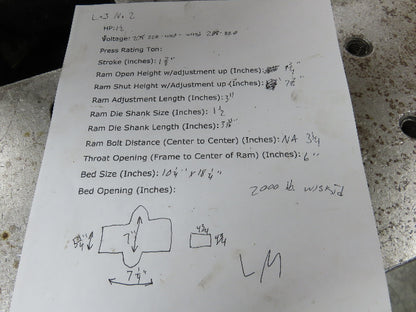 L&J No. 2
HP: 1½
Voltage: 208 230
Press Rating Ton:
Stroke (inches): 1
Ram Open Height w/adjustment up (Inches):
Ram Shut Height w/adjustment up (Inches):
Ram Adjustment Length (Inches): 3"
Ram Die Shank Size (Inches): 1½
Ram Die Shank Length (Inches):
Ram Bolt Distance (Center to Center) (Inches): NA 3¼
Throat Opening (Frame to Center of Ram) (Inches): 6"
Bed Size (Inches): 10¼" x 18¼"
Bed Opening (Inches):
2000 lb w/skid
7"
7¼"
LM